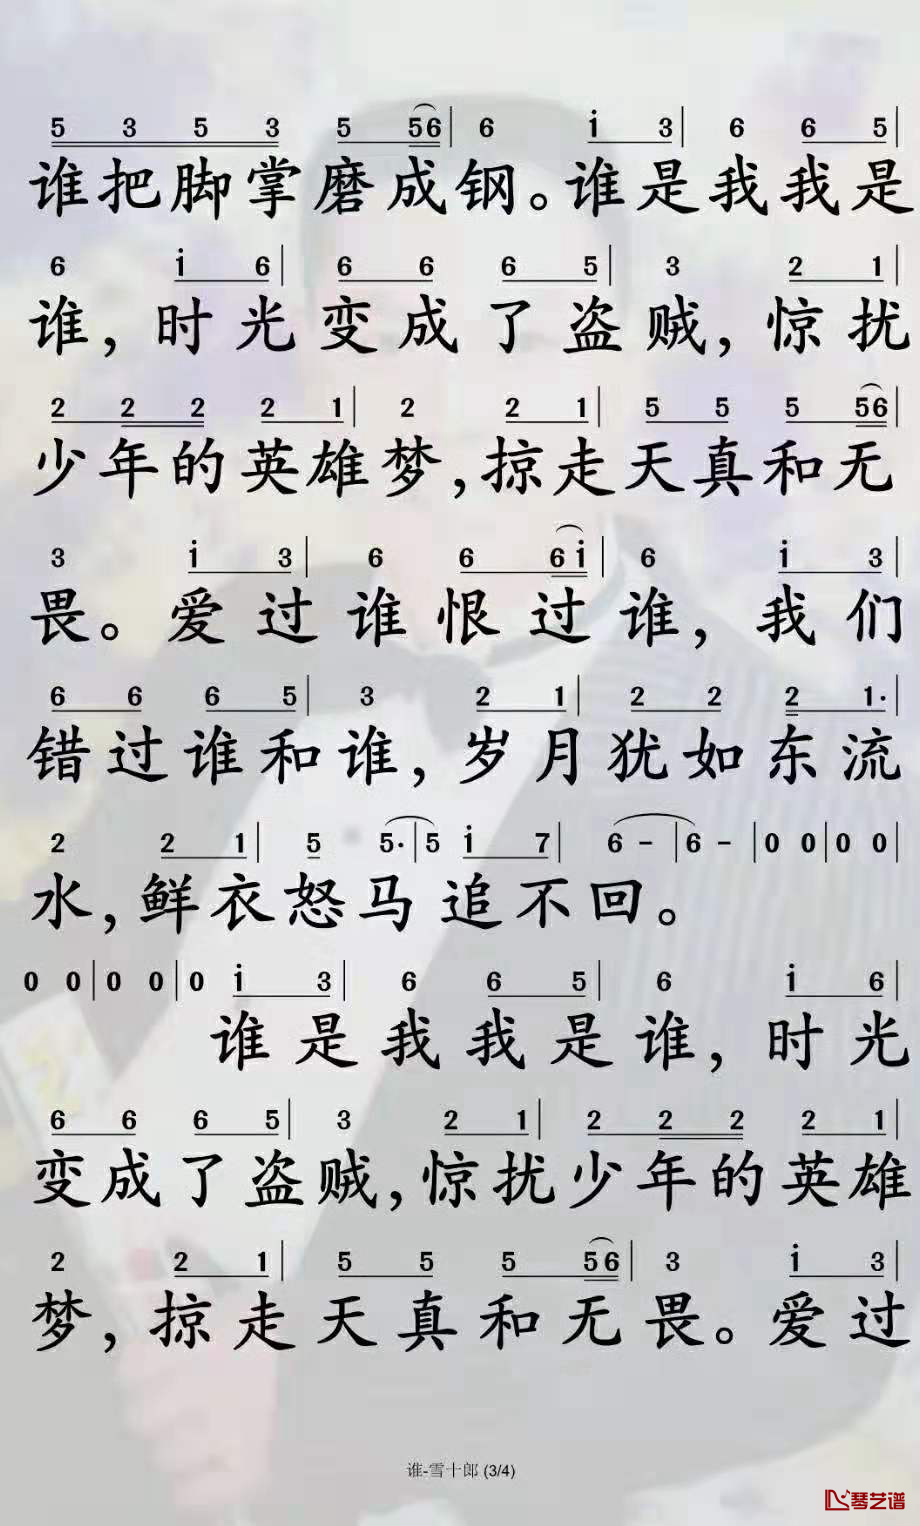 5 3 5 3 5 56| 6 i 3| 6 6 5|
谁把脚掌磨成钢。谁是我我是
6 i 6| 6 6 6 5| 3 2 1|
谁,时光变成了盗贼,惊扰
2 2 2 2 1| 2 2 1| 5 5 5 56|
少年的英雄梦,掠走天真和无
3 i 3| 6 6 6i| 6 i 3|
畏。爱过谁恨过谁,我们
6 6 6 5| 3 2 1| 2 2 2 1·|
错过谁和谁,岁月犹如东流
2 2 1| 5 5·|5 i 7| 6 -|6 -|0 0|0 0|
水,鲜衣怒马追不回。
0 0|0 0|0 i 3| 6 6 5| 6 i 6|
谁是我我是谁,时光
6 6 6 5| 3 2 1| 2 2 2 2 1|
变成了盗贼,惊扰少年的英雄
2 2 1| 5 5 5 56| 3 i 3|
梦,掠走天真和无畏。爱过
谁-雪十郎 (3/4)
琴艺谱